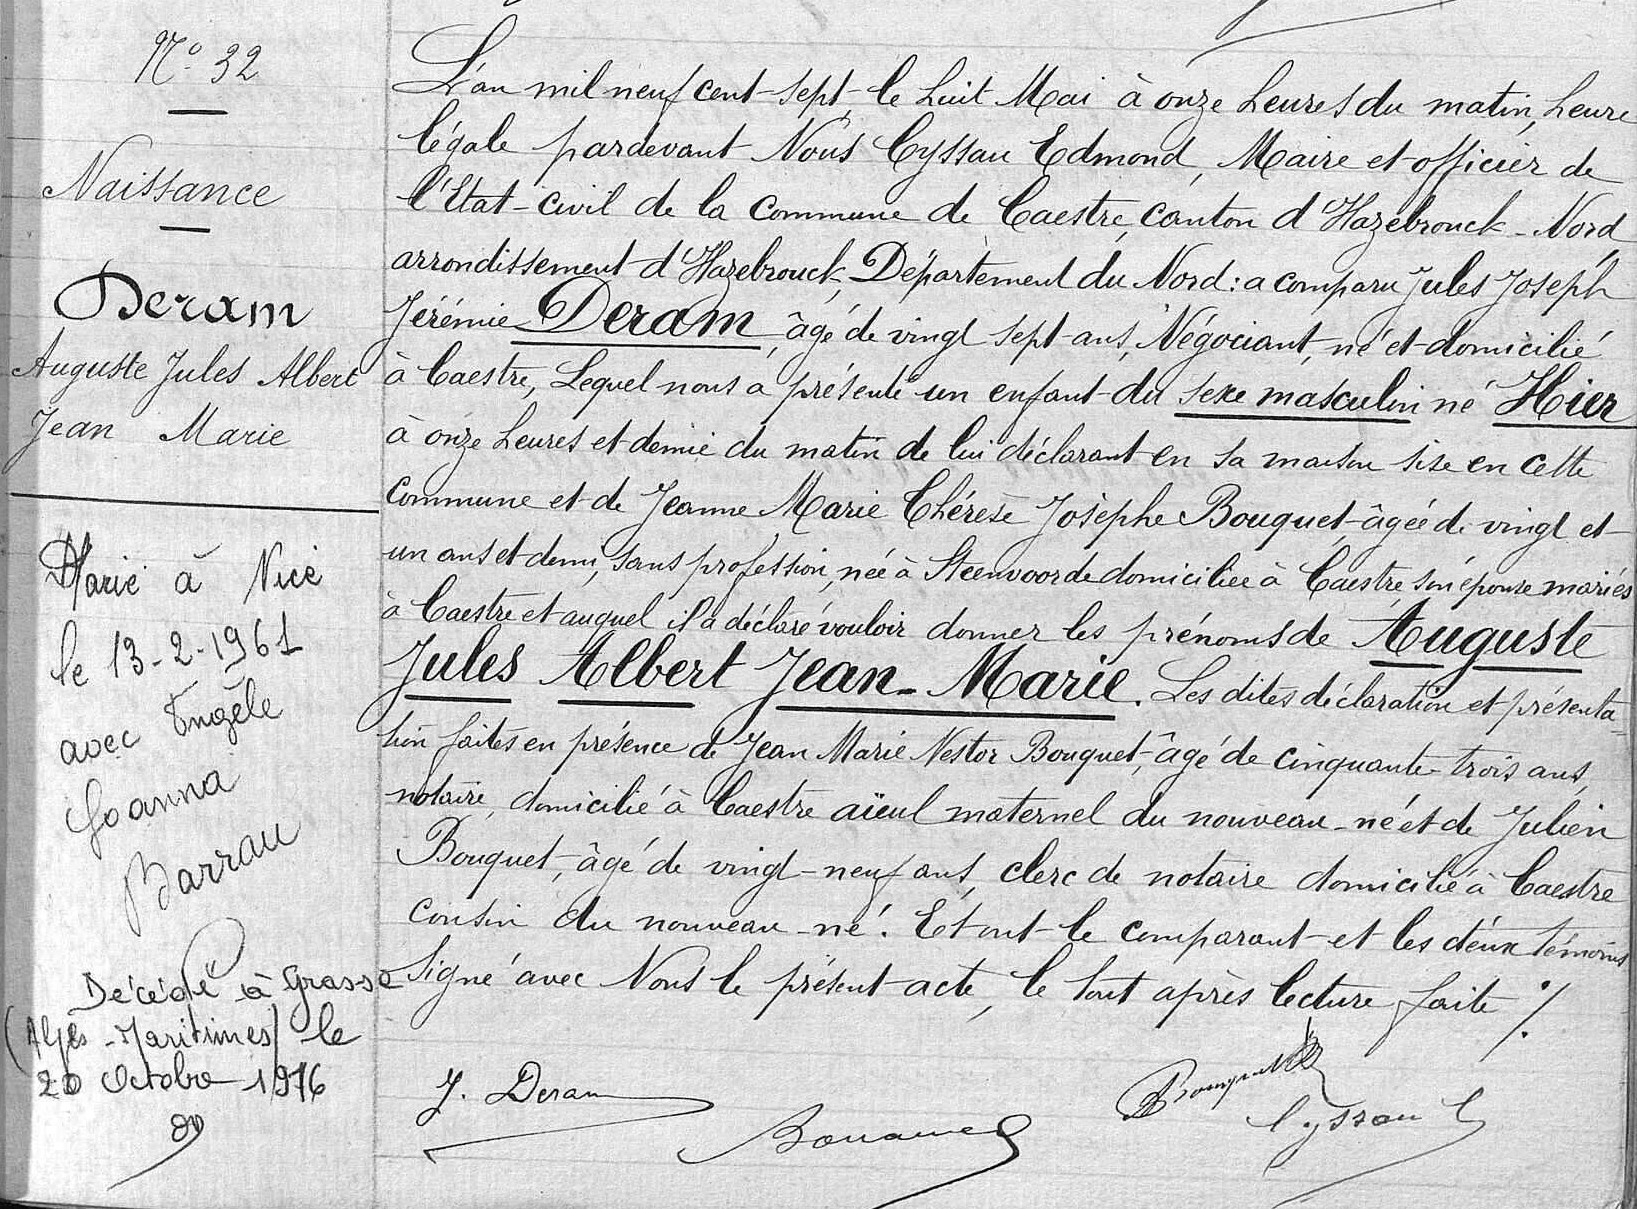 N° 32
Naissance
Deram
Auguste Jules Albert
Jean Marie
Marié à Nice
le 13-2-1961
avec Angèle
Joanna
Barrau
Décédé à Grasse
(Alpes-Maritimes) le
20 Octobre 1976
L'an mil neuf cent sept, le huit Mai à onze heures du matin, heure
légale pardevant Nous Cyssau Edmond, Maire et officier de
l'Etat-civil de la Commune de Caestre, canton d'Hazebrouck-Nord
arrondissement d'Hazebrouck, Département du Nord : a comparu Jules Joseph
Jérémie Deram, âgé de vingt sept ans, Négociant, né et domicilié
à Caestre, Lequel nous a présenté un enfant du sexe masculin né Hier
à onze heures et demie du matin de lui déclarant en sa maison sise en cette
commune et de Jeanne Marie Thérèse Josèphe Bouquet âgée de vingt et
un ans et demi, sans profession, née à Steenvoorde domiciliée à Caestre, son épouse mariés
à Caestre et auquel il a déclaré vouloir donner les prénoms de Auguste
Jules Albert Jean-Marie. Les dites déclaration et présenta-
tion faites en présence de Jean Marie Nestor Bouquet, âgé de cinquante-trois ans,
notaire, domicilié à Caestre aïeul maternel du nouveau-né et de Julien
Bouquet, âgé de vingt-neuf ans, clerc de notaire domicilié à Caestre
cousin du nouveau-né. Et ont le comparant et les deux témoins
signé avec Nous le présent acte, le tout après lecture faite ./.
J. Deram
Bouquet
Cyssau